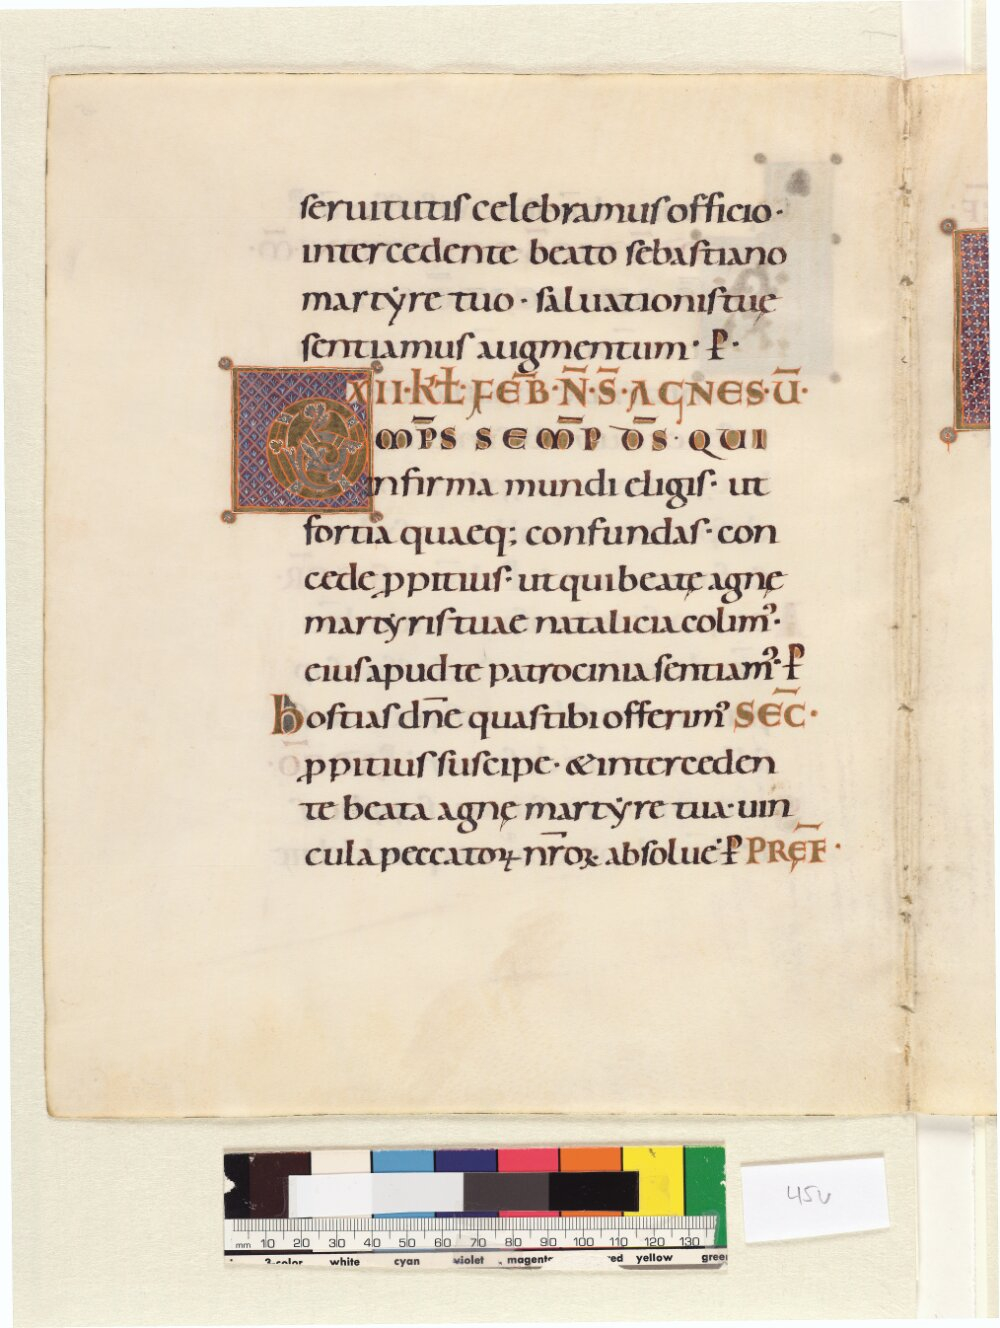 seruitutis celebramus officio·
intercedente beato sebastiano
martẏre tuo· saluationis tuę
sentiamus augmentum· P̄·
XII·KŁ·FEB̄·N̄·S̄·AGNES·Ū·
OMP̄S SEMP D̄S· QUI
infirma mundi eligis· ut
fortia quaeq; confundas· con
cede ꝓpitius· ut qui beatę agnę
martẏris tuae natalicia colim᾿·
eius apud te patrocinia sentiam᾿· P̄
hostias dn̄e quas tibi offerim᾿ SEC̄·
ꝓpitius suscipe· & interceden
te beata agnę martẏre tua· uin
cula peccatoꝝ nr̄oꝝ absolue· P̄ PRĘF̄·
45v
mm 10 20 30 40 50 60 70 80 90 100 110 120 130
3-color white cyan violet magenta red yellow green